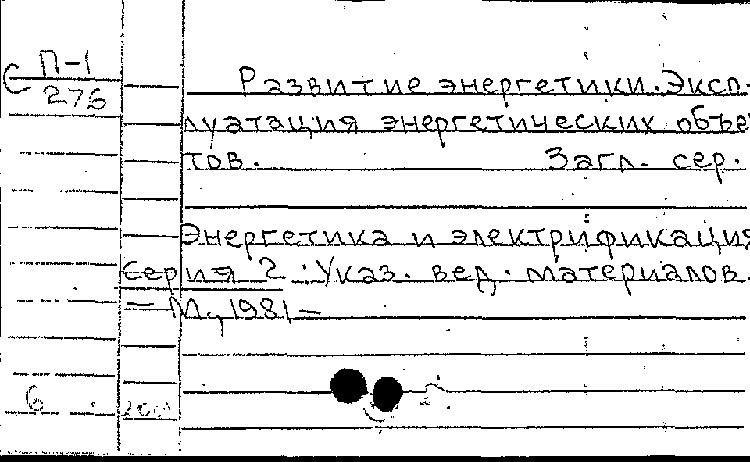 С П-1
276
Развитие энергетики. Эксп-
луатация энергетических объе
тов. Загл. сер.
Энергетика и электрификация
Серия 2. Указ. вед. материалов.
— М., 1981 —
6